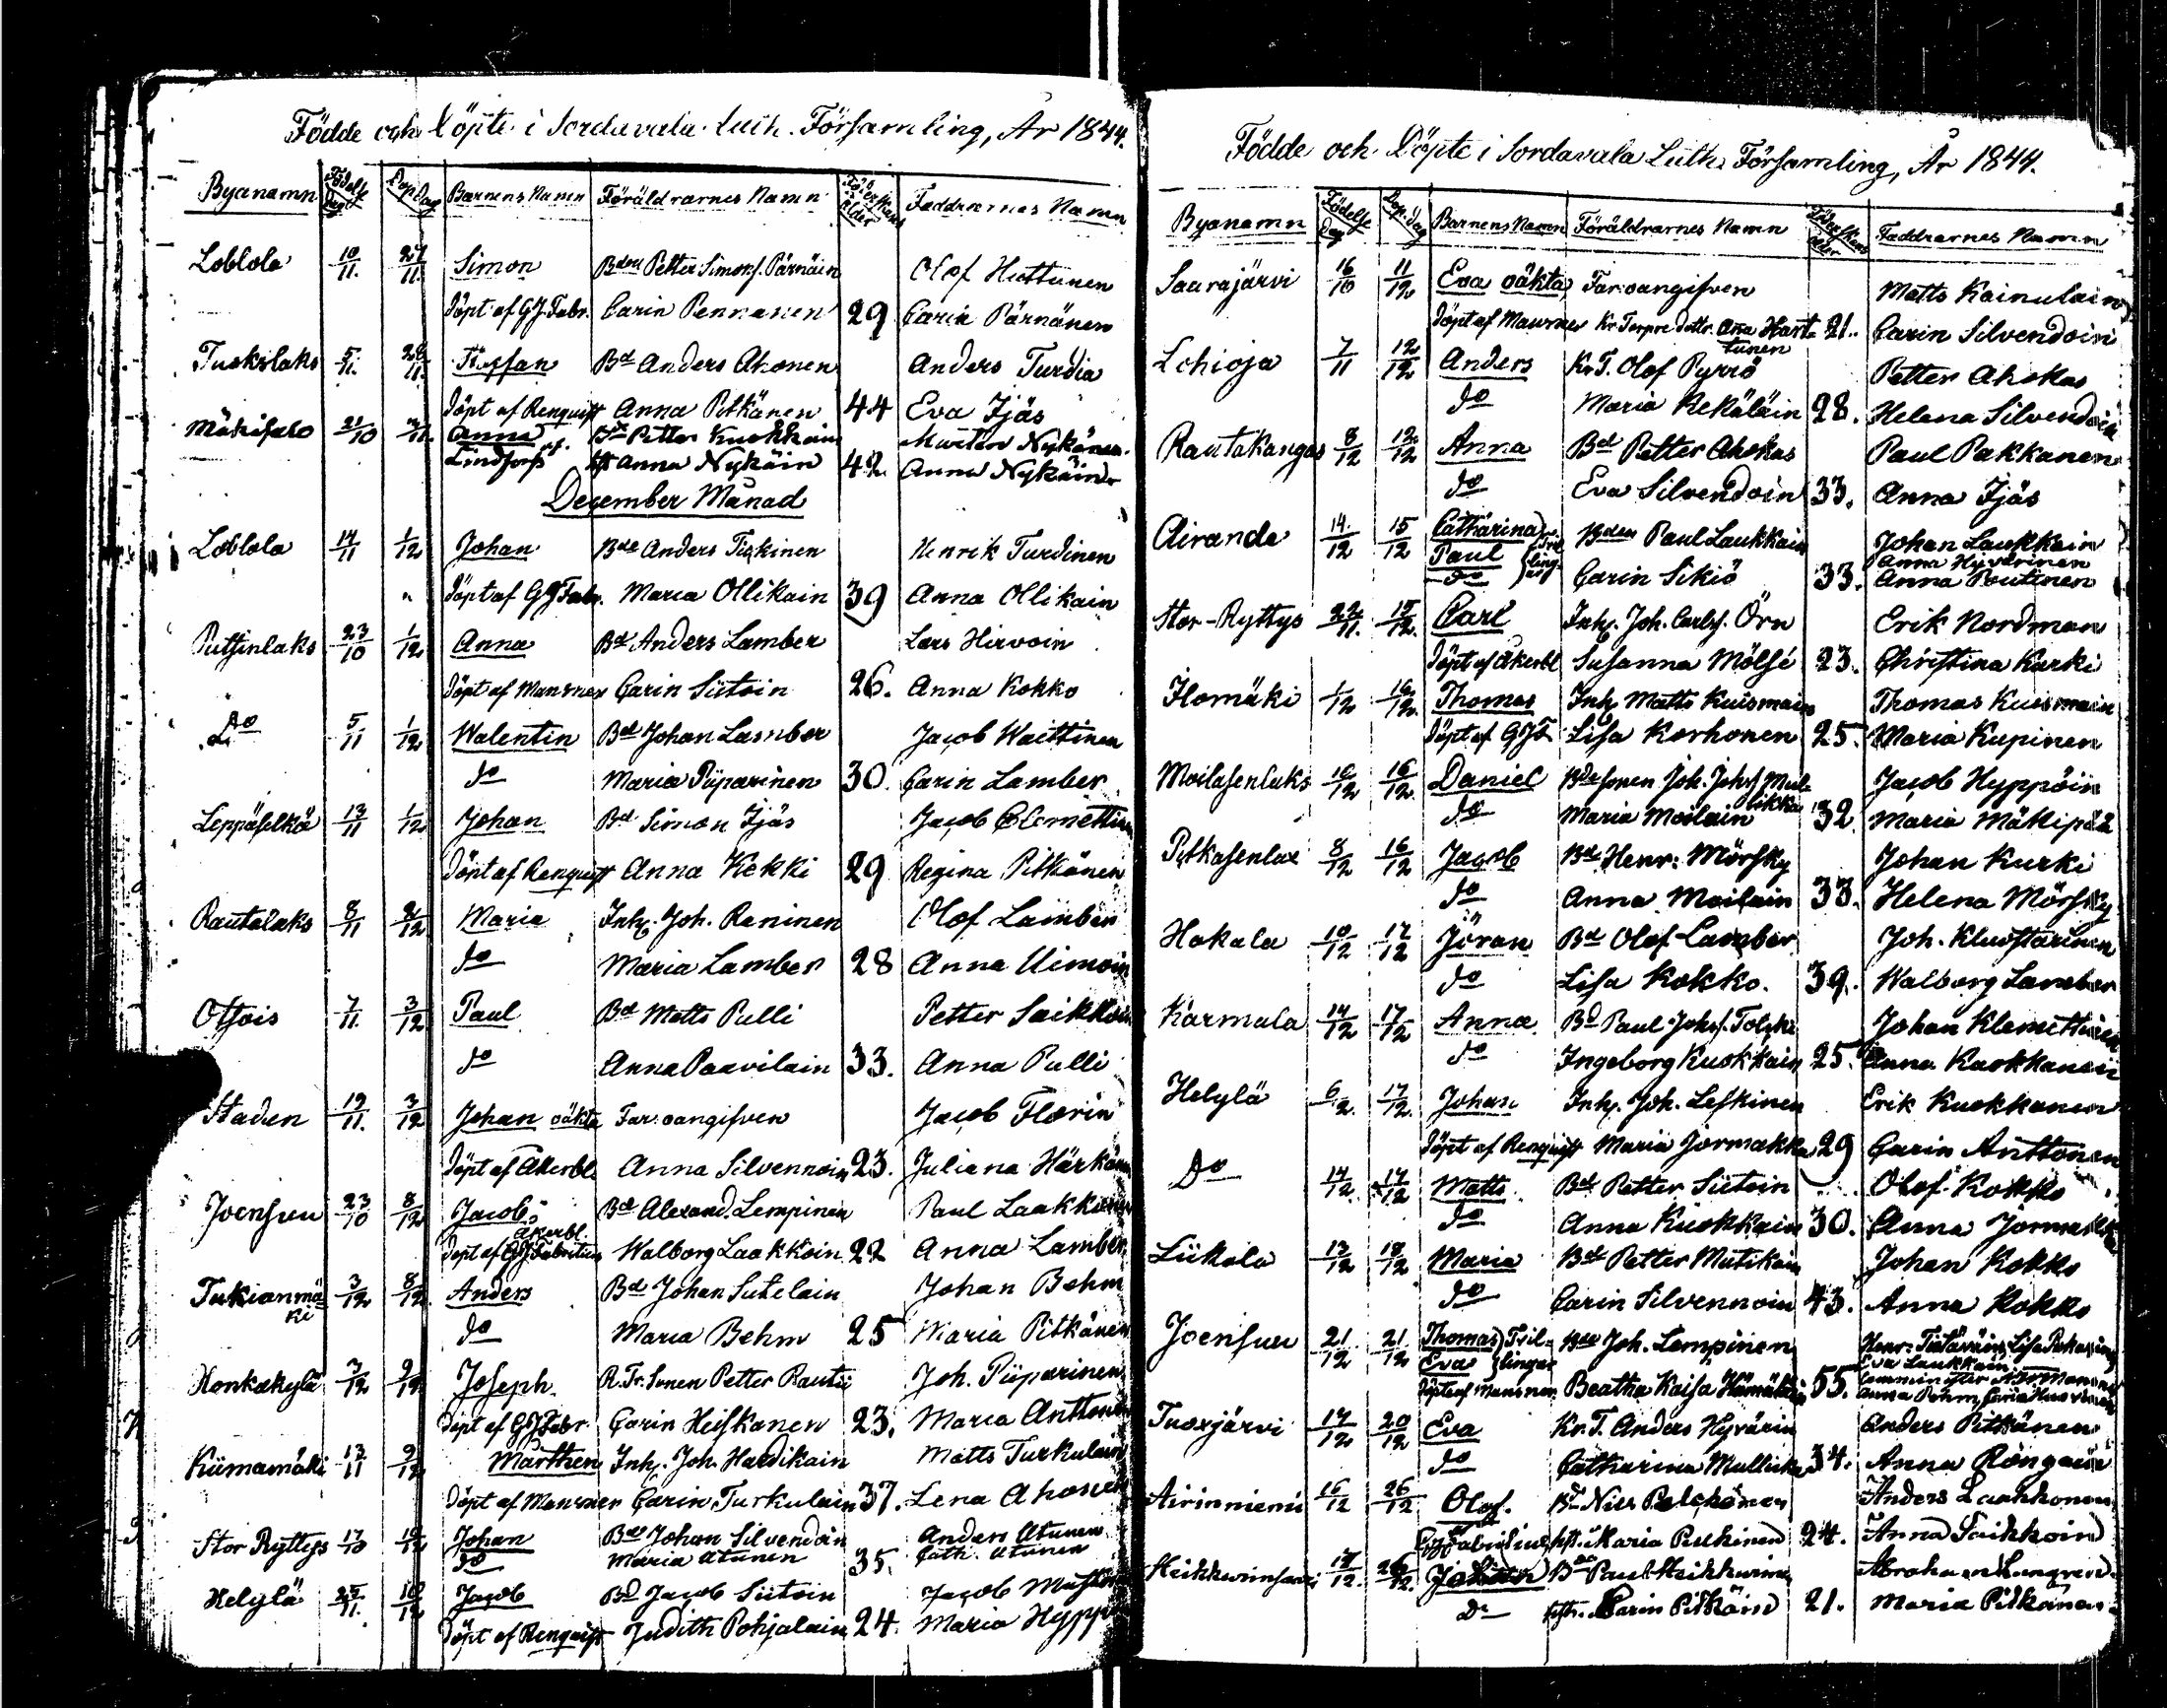 Födde och Döpte i Sordavala Luth. Församling, År 1844.
Byanamn Födelse Dag Döp Dag Barnens Namn Föräldrarnes Namn Föderskans ålder Faddrarnes Namn
Loblola 10/11. 27/11. Simon Bdn Petter Simonss. Pärnäin Olof Huttunen
Döpt af GJ. Fabr. Carin Pennanen 29 Carin Pärnänen
Tuokslaks 5/11. 28/11. Staffan Bd Anders Ahonen Anders Turdia
Döpt af Renquist Anna Pitkänen 44 Eva Ijäs
Mäkisalo 21/10 Anna Bd Petter Kuokkain Mårten Nykänen
af. Lindfors Anna Nykäin 42. Anna Nykäin
December Månad
Loblola 14/11 1/12 Johan Bde Anders Tiikinen Henrik Turdinen
Döpt af GJ Fabr. Maria Ollikain 39 Anna Ollikain
Putsinlaks 23/10 1/12 Anna Bd Anders Lamber Lars Hirvoin
Döpt af Mansner Carin Siitoin 26. Anna Kokko
Do 5/11 1/12 Walentin Bd Johan Lamber Jacob Waittinen
do Maria Piiparinen 30. Carin Lamber
Leppäselkä 13/11 1/12 Johan Bd Simon Ijäs Jacob Clemettin
Döpt af Renquist Anna Kekki 29 Regina Pitkänen
Rautalaks 8/11 2/12 Maria Inh. Joh. Reninen Olof Lamber
do Maria Lamber 28 Anna Uimoin
Otsois 7/11. 3/12 Paul Bd Matts Pulli Petter Saikkoin
do Anna Paavilain 33. Anna Pulli
Staden 19/11. 3/12 Johan oäkta Far: oangifven Jacob Florin
Döpt af Åkerbl. Anna Silvennoin 23. Juliana Härkön
Joensuu 23/10 8/12 Jacob Bd Alexand. Lempinen Paul Laakkon
Åkerbl.
Döpt af GJ Fabritius Walborg Laakkoin 22 Anna Lamber
Tukianmä= 3/12 8/12 Anders Bd Johan Sutelain Johan Behm
ki do Maria Behm 25 Maria Pitkänen
Honkakylä 3/12 9/12 Joseph. R. Tr. Sonen Petter Rautii Joh. Piiparinen
Döpt af GJ Fabr. Carin Heiskanen 23. Maria Anttonen
Kiimamäki 13/11 9/12 Mårthen Inh. Joh. Hardikain Matts Turkulain
Döpt af Mansner Carin Turkulain 37. Lena Ahonen
Stor Ryttys 17/10 10/12 Johan Bde Johan Silvendoin Anders Atunen
do Maria Atunen 35. Cath. Atunen
Helylä 25/11. 10/12 Jacob Bd Jacob Siitoin Jacob
Döpt af Renquist Judith Pohjalain 24. Maria Hypp
Födde och Döpte i Sordavala Luth. Församling, År 1844.
Byanamn Födelse Dag Döp. dag Barnens Namn Föräldrarnes Namn Föderskans ålder Faddrarnes Namn
Saarajärvi 16/10 11/12 Eva oäkta Far: oangifven Matts Kainulain
Döpt af Mansner Kr. Torpare dottr. Ana Hart= 21. Carin Silvendoin
tunen
Lohioja 7/11 12/12 Anders Kr. T. Olof Pyrrö Petter Ahokas
do Maria Rekäläin 28. Helena Silvendoin
Rautakangas 8/12 12/12 Anna Bd Petter Ahokas Paul Pakkanen
do Eva Silvendoin 33. Anna Ijäs
Airanda 14/12 15/12 Catharina Tvil= Bden Paul Laukkain Johan Laukkain
Paul lingar Anna Hyvärinen
do Carin Sikiö 33. Anna Poutinen
Stor-Ryttys 22/11. 15/12. Carl Inh. Joh. Carls. Örn Erik Nordman
Döpt af Åkerbl Susanna Mölsé 23. Christina Kurki
Ilomäki 1/12 16/12 Thomas Inh. Matts Kuismain Thomas Kuismain
Döpt af GJF Lisa Korhonen 25. Maria Kupinen
Moilasenlaks 10/12 16/12. Daniel Bde sonen Joh. Johs. Mul= Jacob Hyppöin
likka
do Maria Moilain 32. Maria Mäkipää
Pitkasenlax 8/12 16/12 Jacob Bde Henr: Mörsky Johan Kurki
do Anna Moilain 33. Helena Mörsky
Hakala 10/12 17/12 Jöran Bd Olof Lamber Joh. Kluostarinen
do Lisa Kokko. 39. Walborg Lamber
Karmala 14/12 17/12 Anna Bd Paul Johs. Tolski Johan Klemettinen
do Ingeborg Kuokkain 25. Anna Kuokkanen
Helylä 6/12. 17/12. Johan Inh. Joh. Leskinen Erik Kuokkanen
Döpt af Renquist Maria Jormakka 29 Carin Anttonen
Do 14/12. 17/12 Matts Bd Petter Siitoin Olof Kokko
do Anna Kuokkain 30. Anna Jormakka
Liikola 13/12 18/12 Maria Bde Petter Mutikain Johan Kokko
do Carin Silvennoin 43. Anna Kokko
Joensuu 21/12 21/12 Thomas Tvil= Bde Joh. Lempinen
Eva lingar Eva Laukkain
Döpt af Mansner Beatha Kaisa Hämäläin 55.
Tuoxjärvi 17/12 20/12 Eva Kr. T. Anders Hyvärin Anders Pitkänen
do Catharina Mullikka 34. Anna Röngäin
Airinniemi 16/12 26/12 Olof. Bd Nils Pelkönen Anders Laakkonen
GJ Fabritius hst. Maria Pulkinen 24. Anna Saikkoin
Heikkurinsaari 17/12. 26/12. Johan Bd Paul Heikkurinen Abraham Lungren
Do hst. Carin Pitkäin 21. Maria Pitkänen